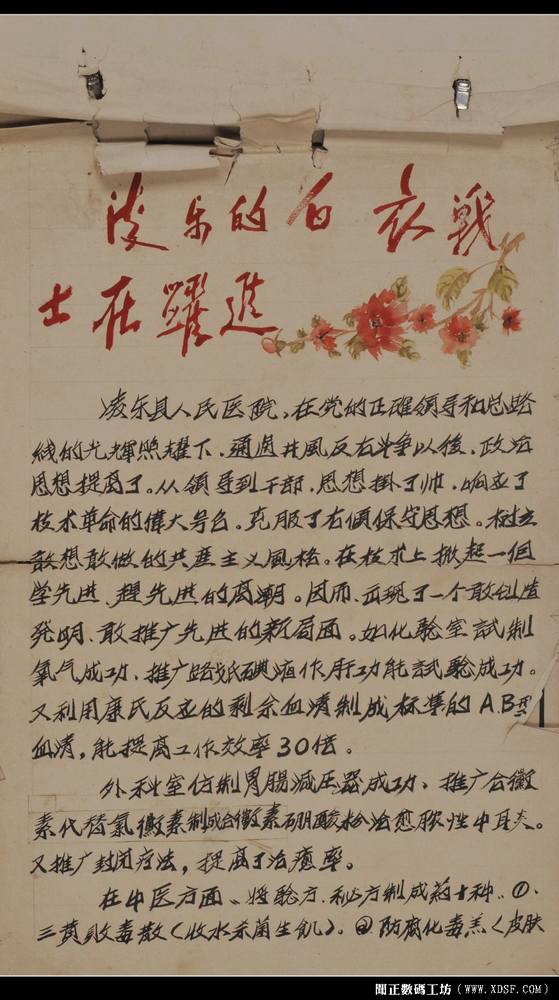 凌乐的白衣戰
士在躍進
凌乐县人民医院，在党的正確领导和总路
线的光輝照耀下．通过井風反右斗争以後．政治
思想提高了。从领导到干部．思想掛了帅．响应了
技术革命的偉大号召。克服了右傾保守思想。树立
敢想敢做的共産主义風格。在技术上掀起一個
学先进、趕先进的高潮。因而．出現了一个敢创造
発明、敢推广先进的新局面。如化驗室試制
氧气成功．推广碘液作肝功能試驗成功。
又利用康氏反应的剩余血清制成标準的A.B型
血清，能提高工作效率30倍。
外科室仿制胃腸減压器成功、推广合黴
素代替氯黴素制成合黴素硼酸粉治愈脓性中耳炎。
又推广封闭疗法，提高了治癒率。
在中医方面、経驗方．秘方制成葯十种．①．
三黄敗毒散〈收水杀菌生肌〉．②防腐化毒羔〈皮肤
聞正數碼工坊（www.XDSF.com）